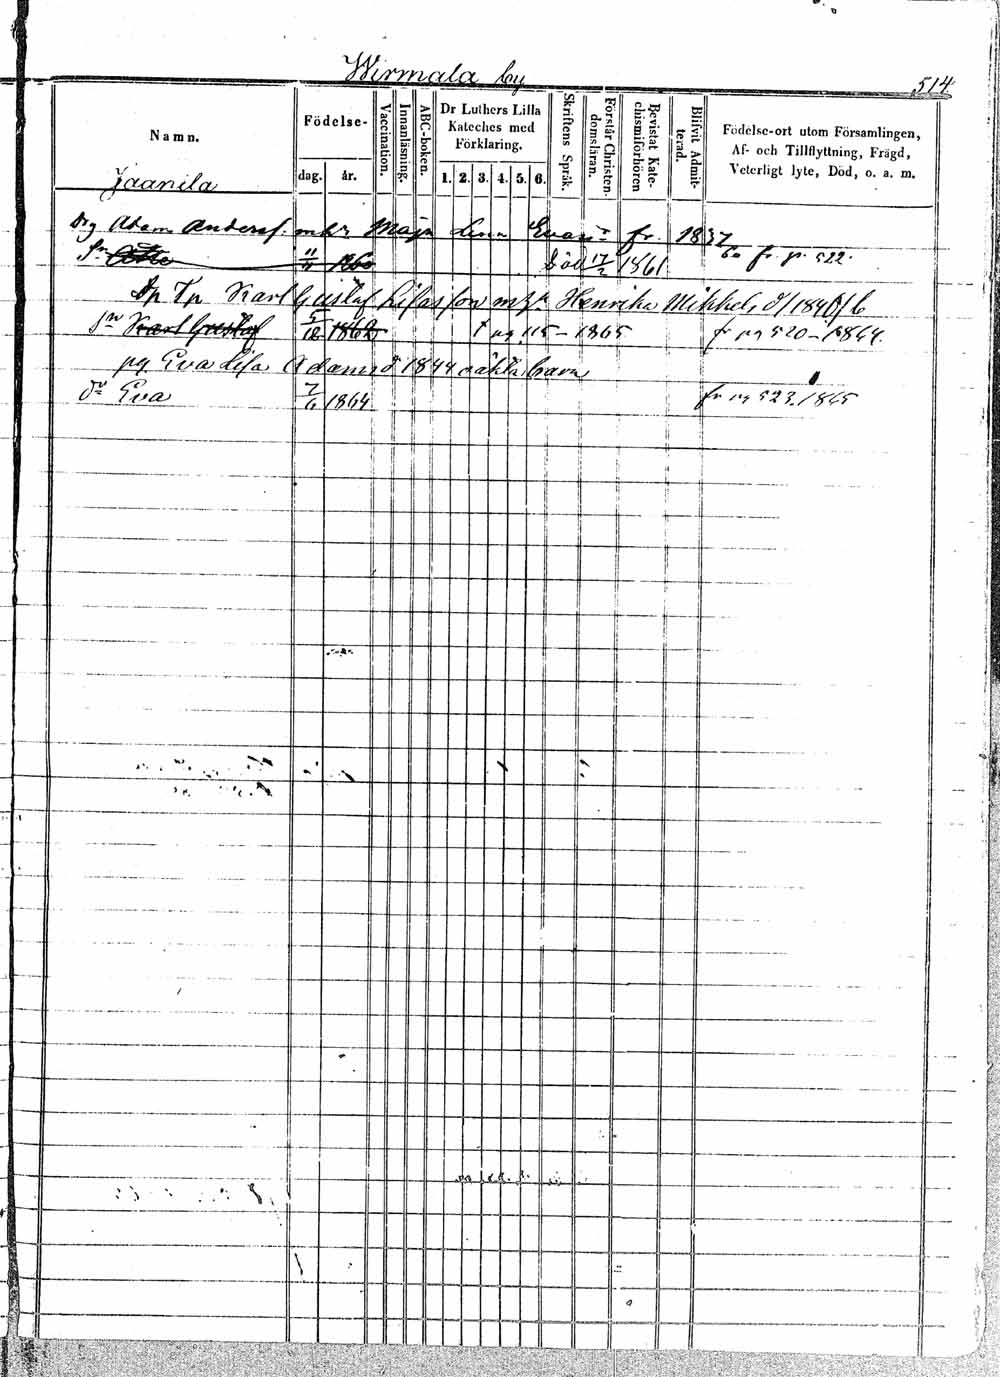 Wirmala by
514
Namn.
Födelse-
dag. år.
Vaccination.
Innanläsning.
ABC-boken.
Dr Luthers Lilla
Kateches med
Förklaring.
1. 2. 3. 4. 5. 6.
Skriftens Språk.
Förstår Christen-
domsläran.
Bevistat Kate-
chismiförhören
Blifvit Admit-
terad.
Födelse-ort utom Församlingen,
Af- och Tillflyttning, Frägd,
Veterligt lyte, Död, o. a. m.
Jaanila
Drg Adam Anderss. m h: Maja Lena Evas fr. 1837
Sn 11/11 1860 Död 17/2 1861 fr. p. 522.
Dp Tp Karl Gustaf Lisasson m h Henrika Mikkels d/1840/
Sn Karl Gustaf 5/12 1862 † pg 115 - 1865 fr pg 520 - 1864.
pg Eva Lisa Adams d 1844 oäkta barn
dr Eva 7/6 1864 fr pg 523. 1865